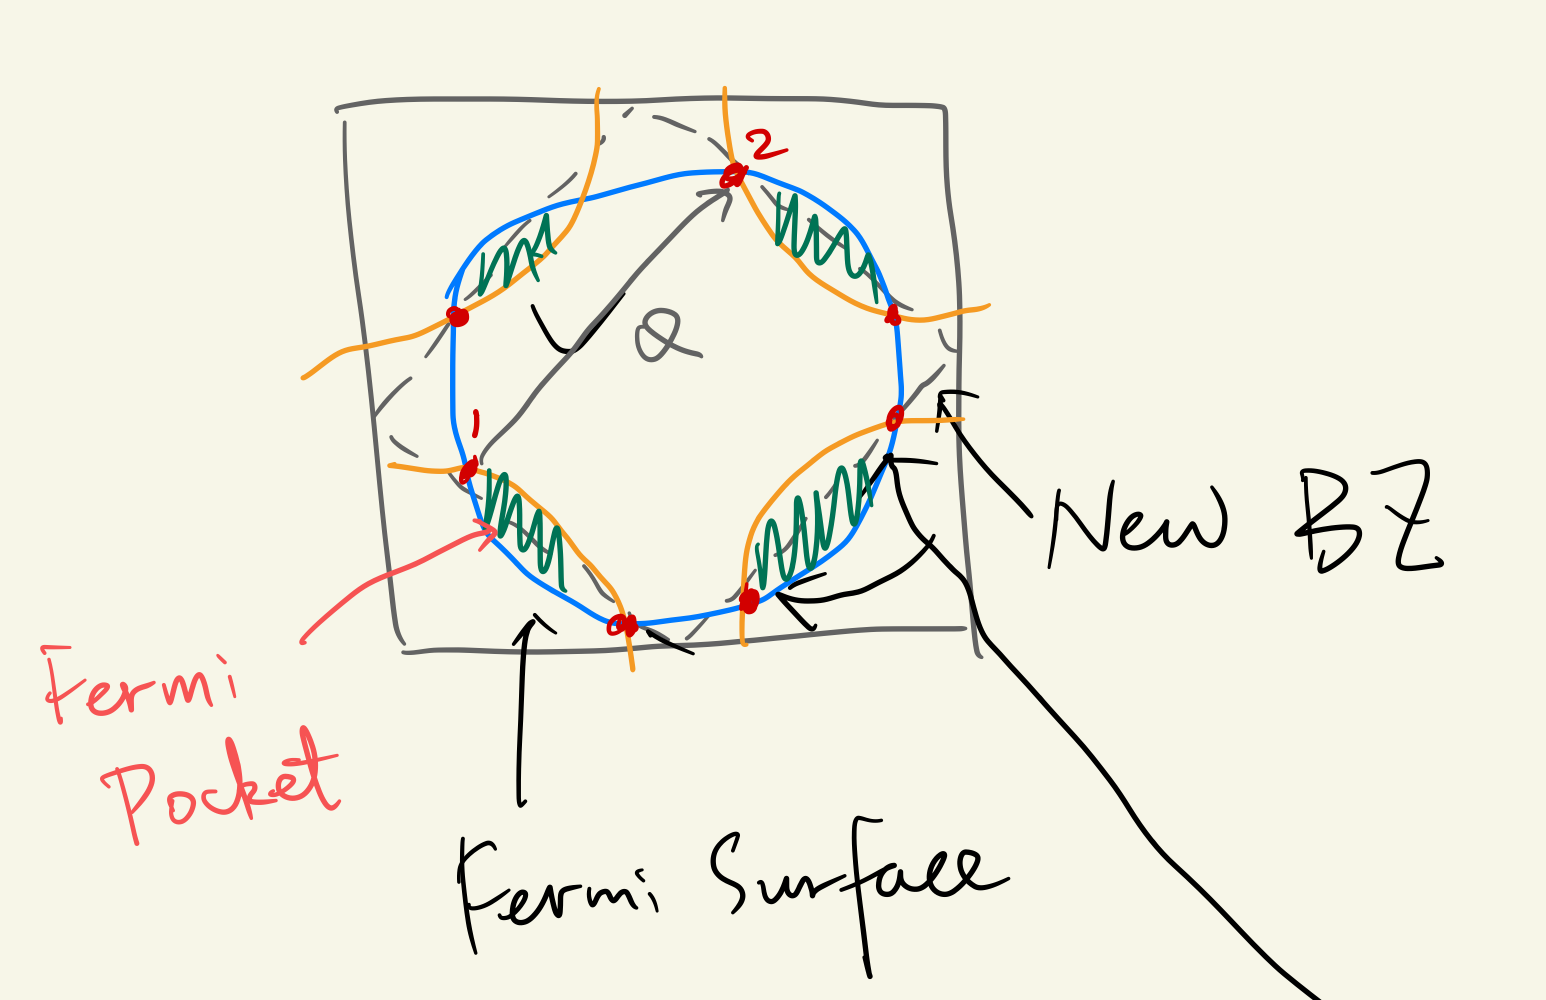 2
Q
1
New BZ
Fermi
Pocket
Fermi Surface